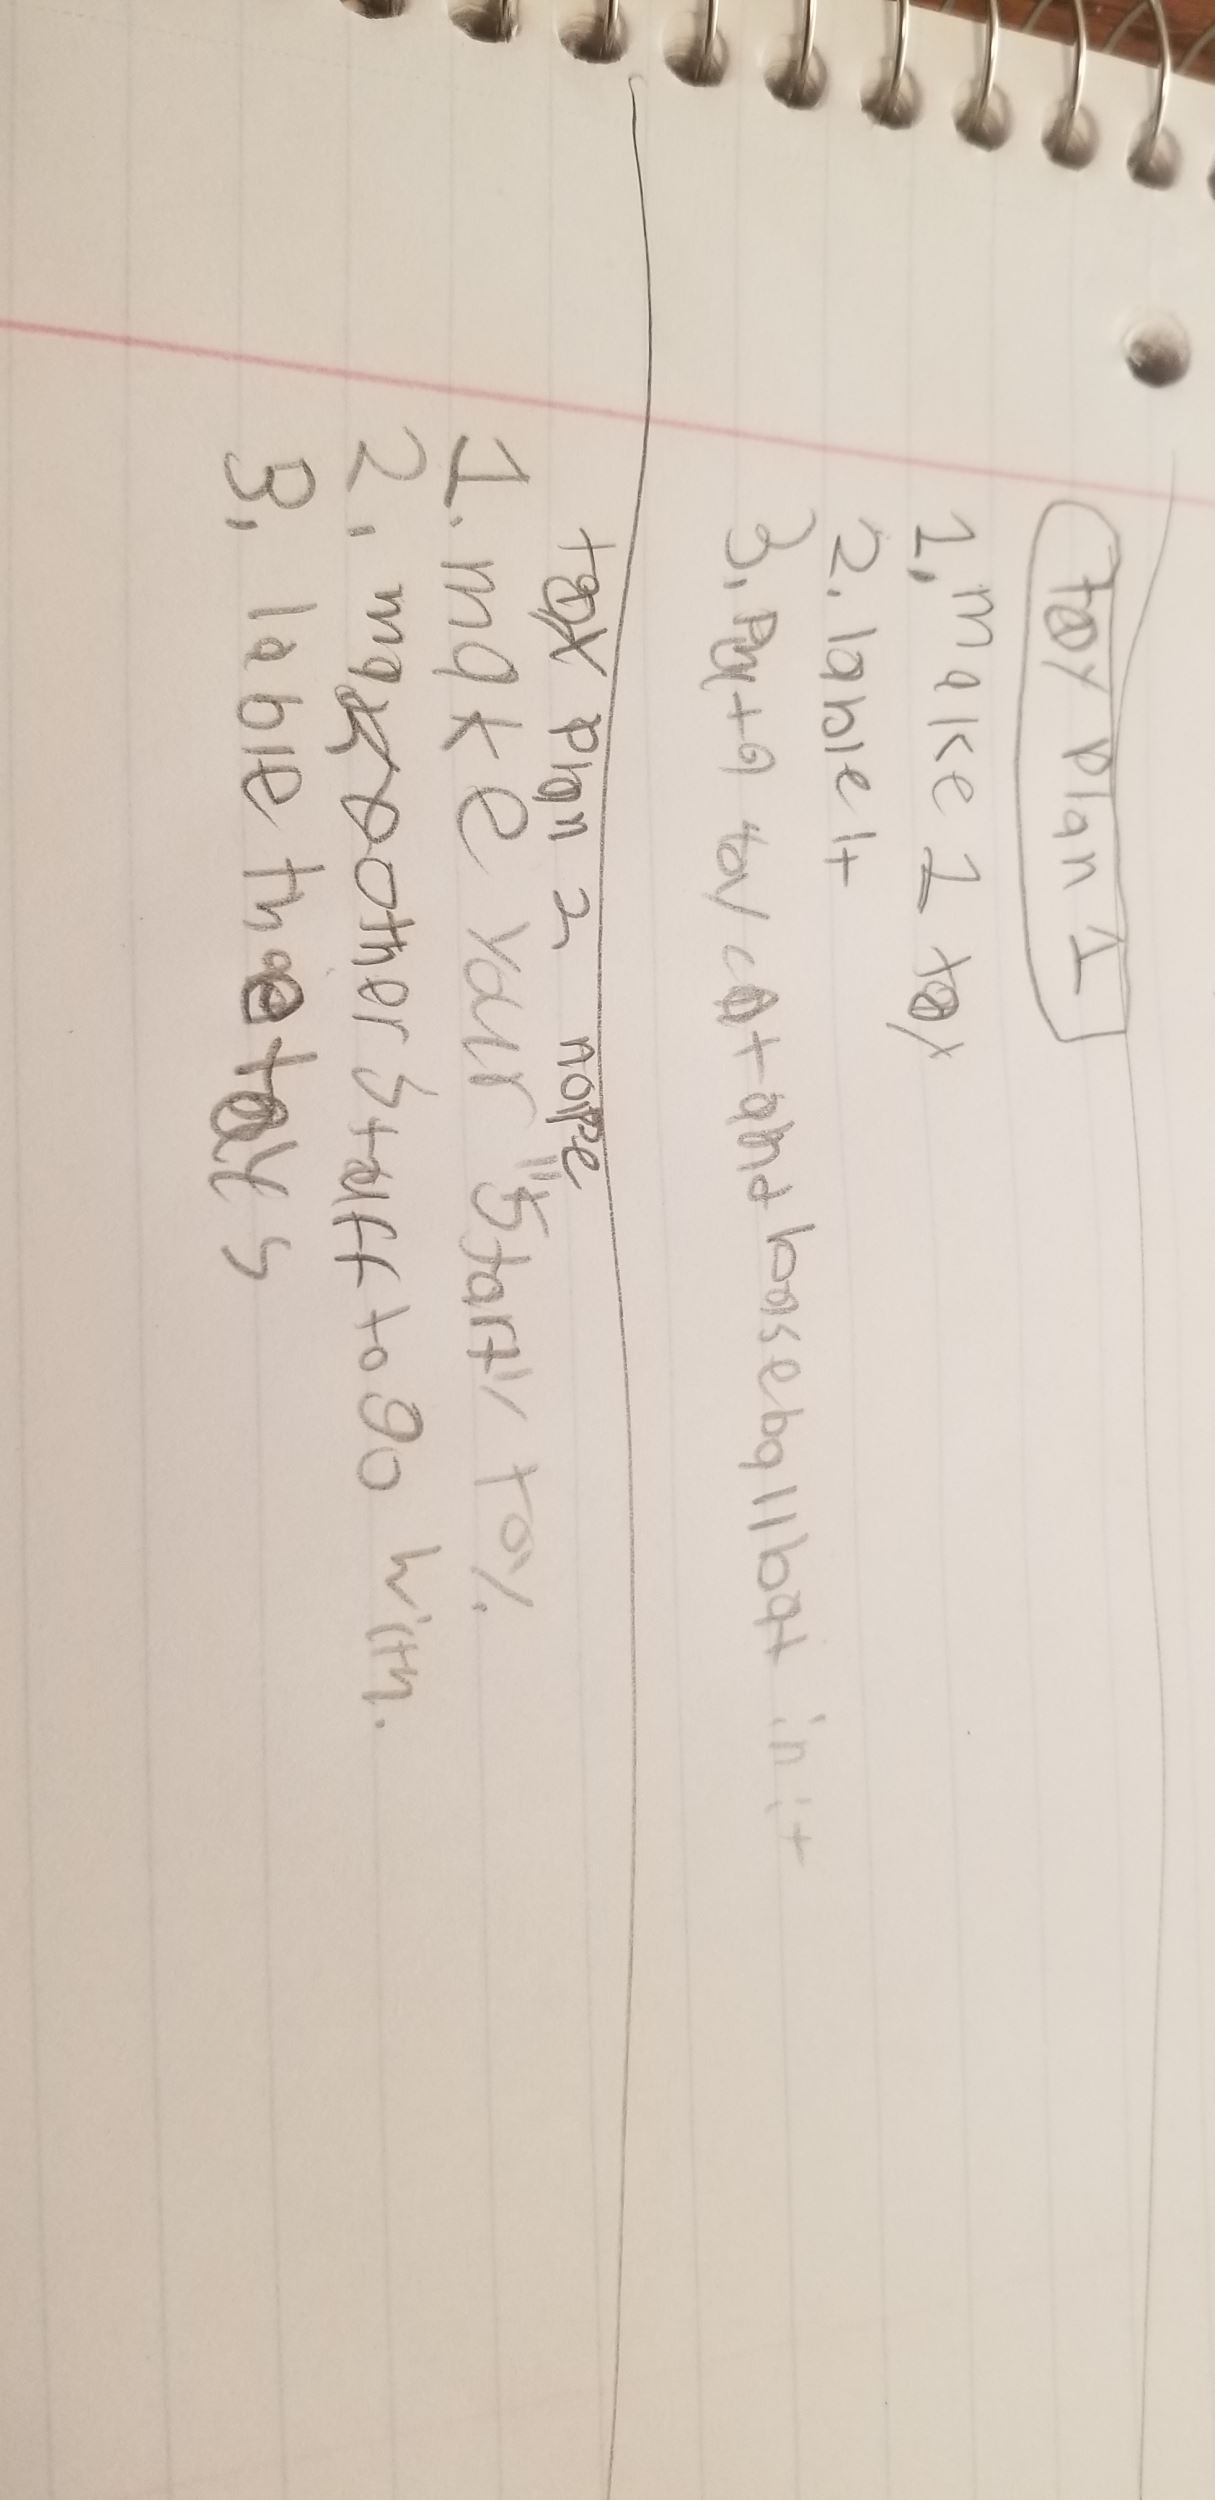 toy plan 1
1. make 1 toy
2. lable it
3. Put a toy cat and baseball bat in it
toy plan 2 nope
1. make your "start" toy.
2. make other stuff to go with.
3. lable the toys